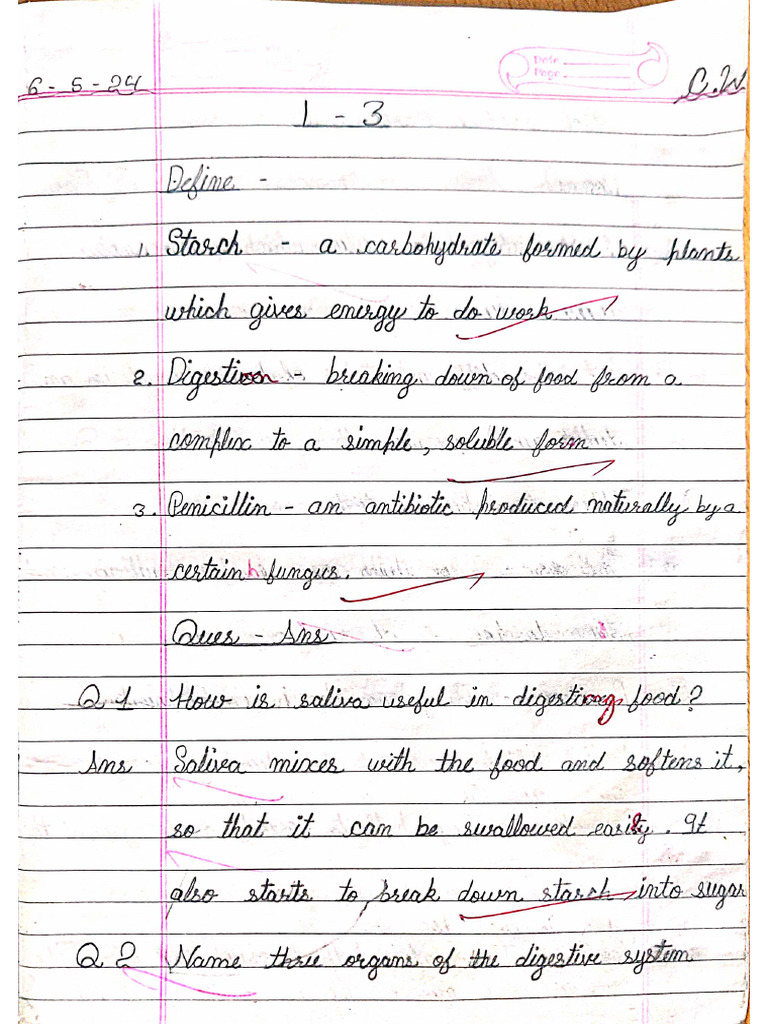 Date
Page
6-5-24
C.W
L-3
Define -
1. Starch - a carbohydrate formed by plants
which gives energy to do work
2. Digestion - breaking down of food from a
complex to a simple, soluble form
3. Penicillin - an antibiotic produced naturally by a
certain fungus.
Ques - Ans
Q 1 How is saliva useful in digesting food?
Ans Saliva mixes with the food and softens it,
so that it can be swallowed easily. It
also starts to break down starch into sugar
Q 2 Name three organs of the digestive system